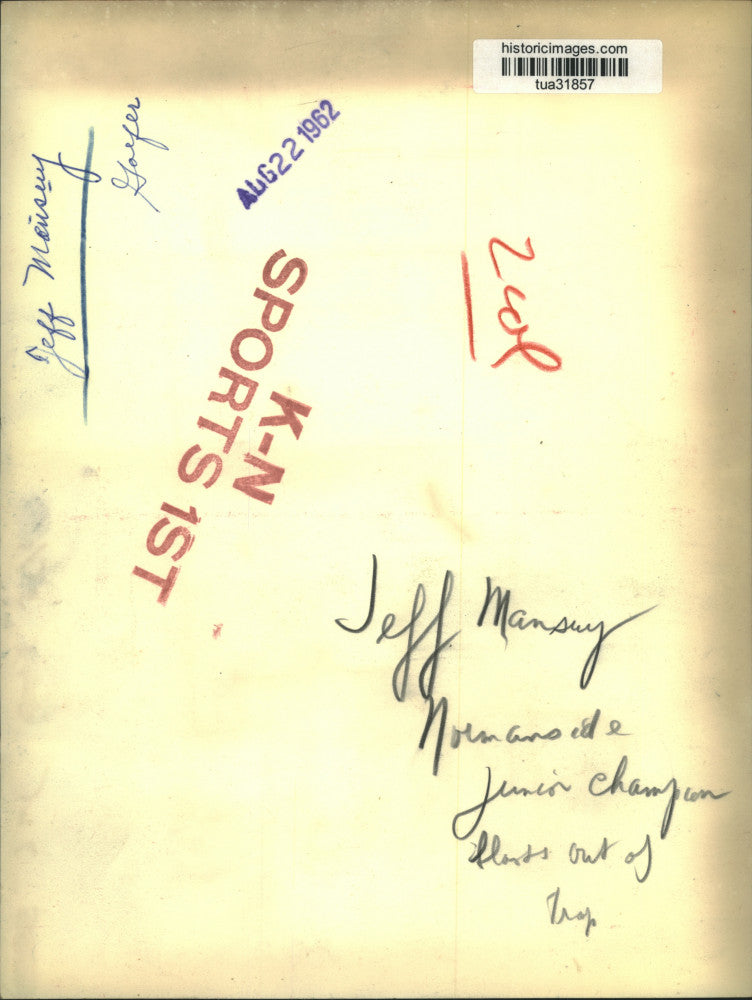 historicimages.com
tua31857
Jeff Mansuy
Golfer
AUG 22 1962
2 col
K-N
SPORTS 1ST
Jeff Mansuy
Normanside
junior champion
blasts out of
trap